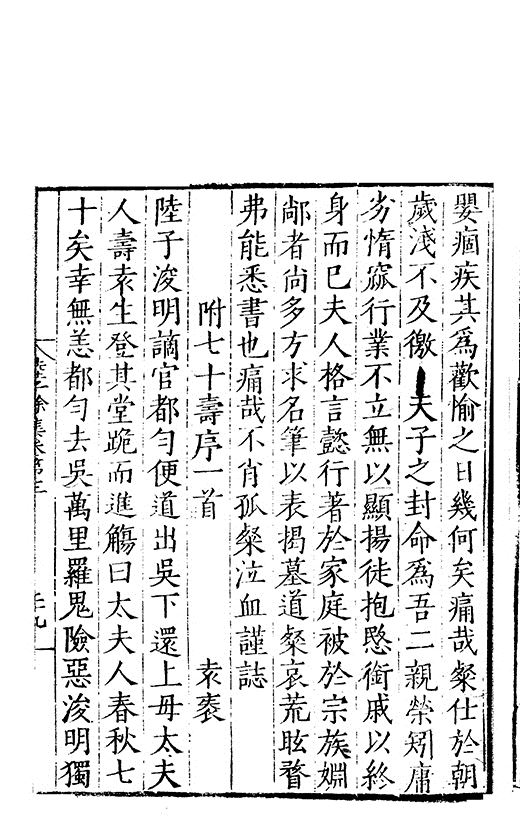 嬰痼疾其爲歡愉之日幾何矣痛哉粲仕於朝
歲淺不及徼 天子之封命爲吾二親榮矧庸
劣惰窳行業不立無以顯揚徒抱愍銜戚以終
身而已夫人格言懿行著於家庭被於宗族婣
鄰者尚多方求名筆以表揭墓道粲哀荒眩瞀
弗能悉書也痛哉不肖孤粲泣血謹誌
附七十壽序一首 袁袠
陸子浚明謫官都勻便道出吳下還上母太夫
人壽袁生登其堂跪而進觴曰太夫人春秋七
十矣幸無恙都勻去吳萬里羅鬼險惡浚明獨